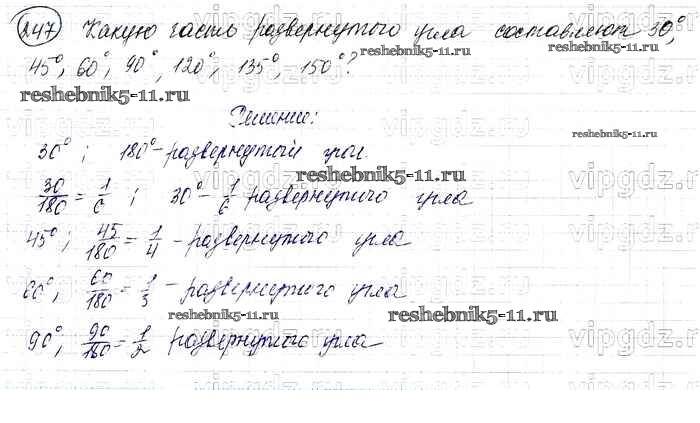 247 Какую часть развернутого угла составляют 30°,
reshebnik5-11.ru reshebnik5-11.ru
45°, 60°, 90°, 120°, 135°, 150°?
reshebnik5-11.ru
Решение:
reshebnik5-11.ru
30°; 180° - развернутый угол.
reshebnik5-11.ru
30/180 = 1/6; 30° - 1/6 развернутого угла
45°; 45/180 = 1/4 - развернутого угла
60°; 60/180 = 1/3 - развернутого угла
reshebnik5-11.ru reshebnik5-11.ru
90°; 90/180 = 1/2 развернутого угла
vipgdz.ru